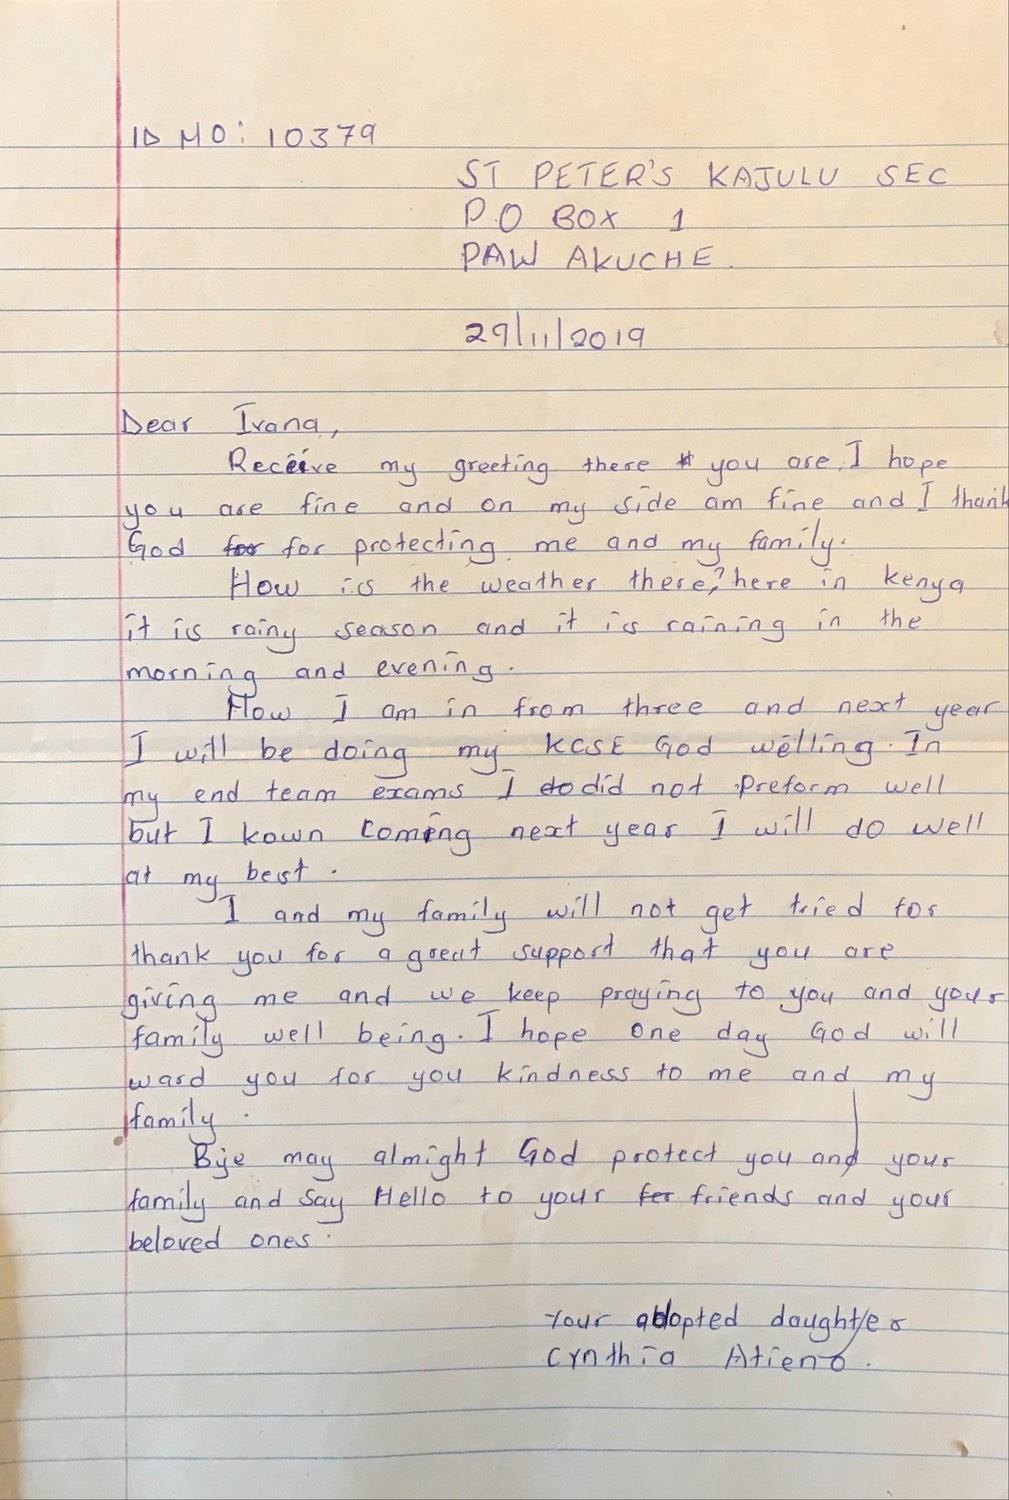 ID NO: 10379
ST PETER'S KAJULU SEC
P.O BOX 1
PAW AKUCHE.
29/11/2019
Dear Ivana,
Receive my greeting there you are, I hope
you are fine and on my side am fine and I thank
God for for protecting me and my family.
How is the weather there? here in kenya
it is rainy season and it is raining in the
morning and evening.
Now I am in from three and next year
I will be doing my KCSE God welling. In
my end team exams I do did not preform well
but I kown coming next year I will do well
at my best.
I and my family will not get tried for
thank you for a great support that you are
giving me and we keep praying to you and your
family well being. I hope one day God will
ward you for you kindness to me and my
family.
Bye may almight God protect you and your
family and say Hello to your fer friends and your
beloved ones.
Your adopted daughter
Cynthia Atieno.